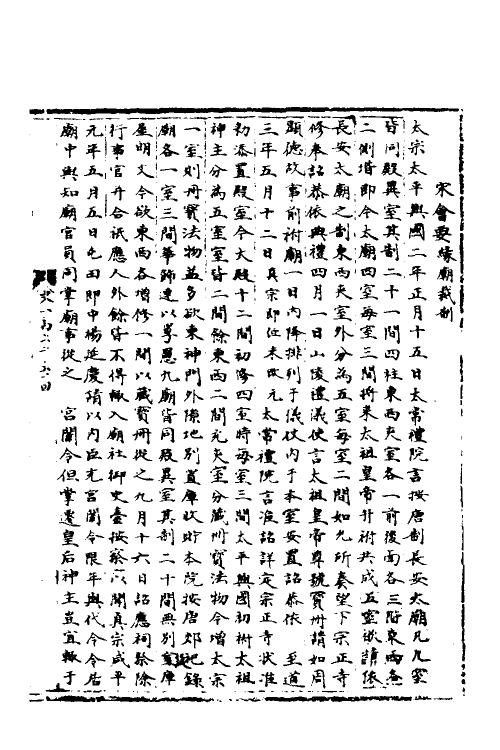 宋會要緣廟裁制
太宗太平興國二年正月十五日太常禮院言按唐制長安太廟凡九室
皆同殿異室其制二十一間四柱東西夾室各一前後面各三階東西各
二側堦即今太廟四室每室三間將來太祖皇帝升祔共成五室欲請依
長安太廟之制東西夾室外分為五室每室二間如允所奏望下宗正寺
修奉詔恭依典禮四月一日山陵禮儀使言太祖皇帝尊號寶冊請如周
顯德故事前祔廟一日內降排列于儀仗內于本室安置詔恭依 至道
三年五月十二日真宗即位未改元太常禮院言准詔詳定宗正寺狀准
初添置殿室今大殿十二間初修四室時每室三間太平興國初祔太祖
神主分為五室室皆二間餘東西二間元夾室分藏冊寶法物今增太宗
一室則冊寶法物益多欲東神門外隙地別置庫收貯本院按唐郊祀錄
廟各一室三間華飾連以罘罳九廟皆同殿異室其制二十間無別置庫
並明文今欲東西各增修一間以藏寶冊從之九月十六日詔應祠祭除
行事官并合祗應人外餘皆不得輒入廟社御史臺按察以聞真宗咸平
元年五月五日屯田郎中楊延慶請以內臣充宮闈令限年與代令居
廟中與知廟官員同掌廟事從之 宮闈令但掌遷皇后神主豈宜輒于